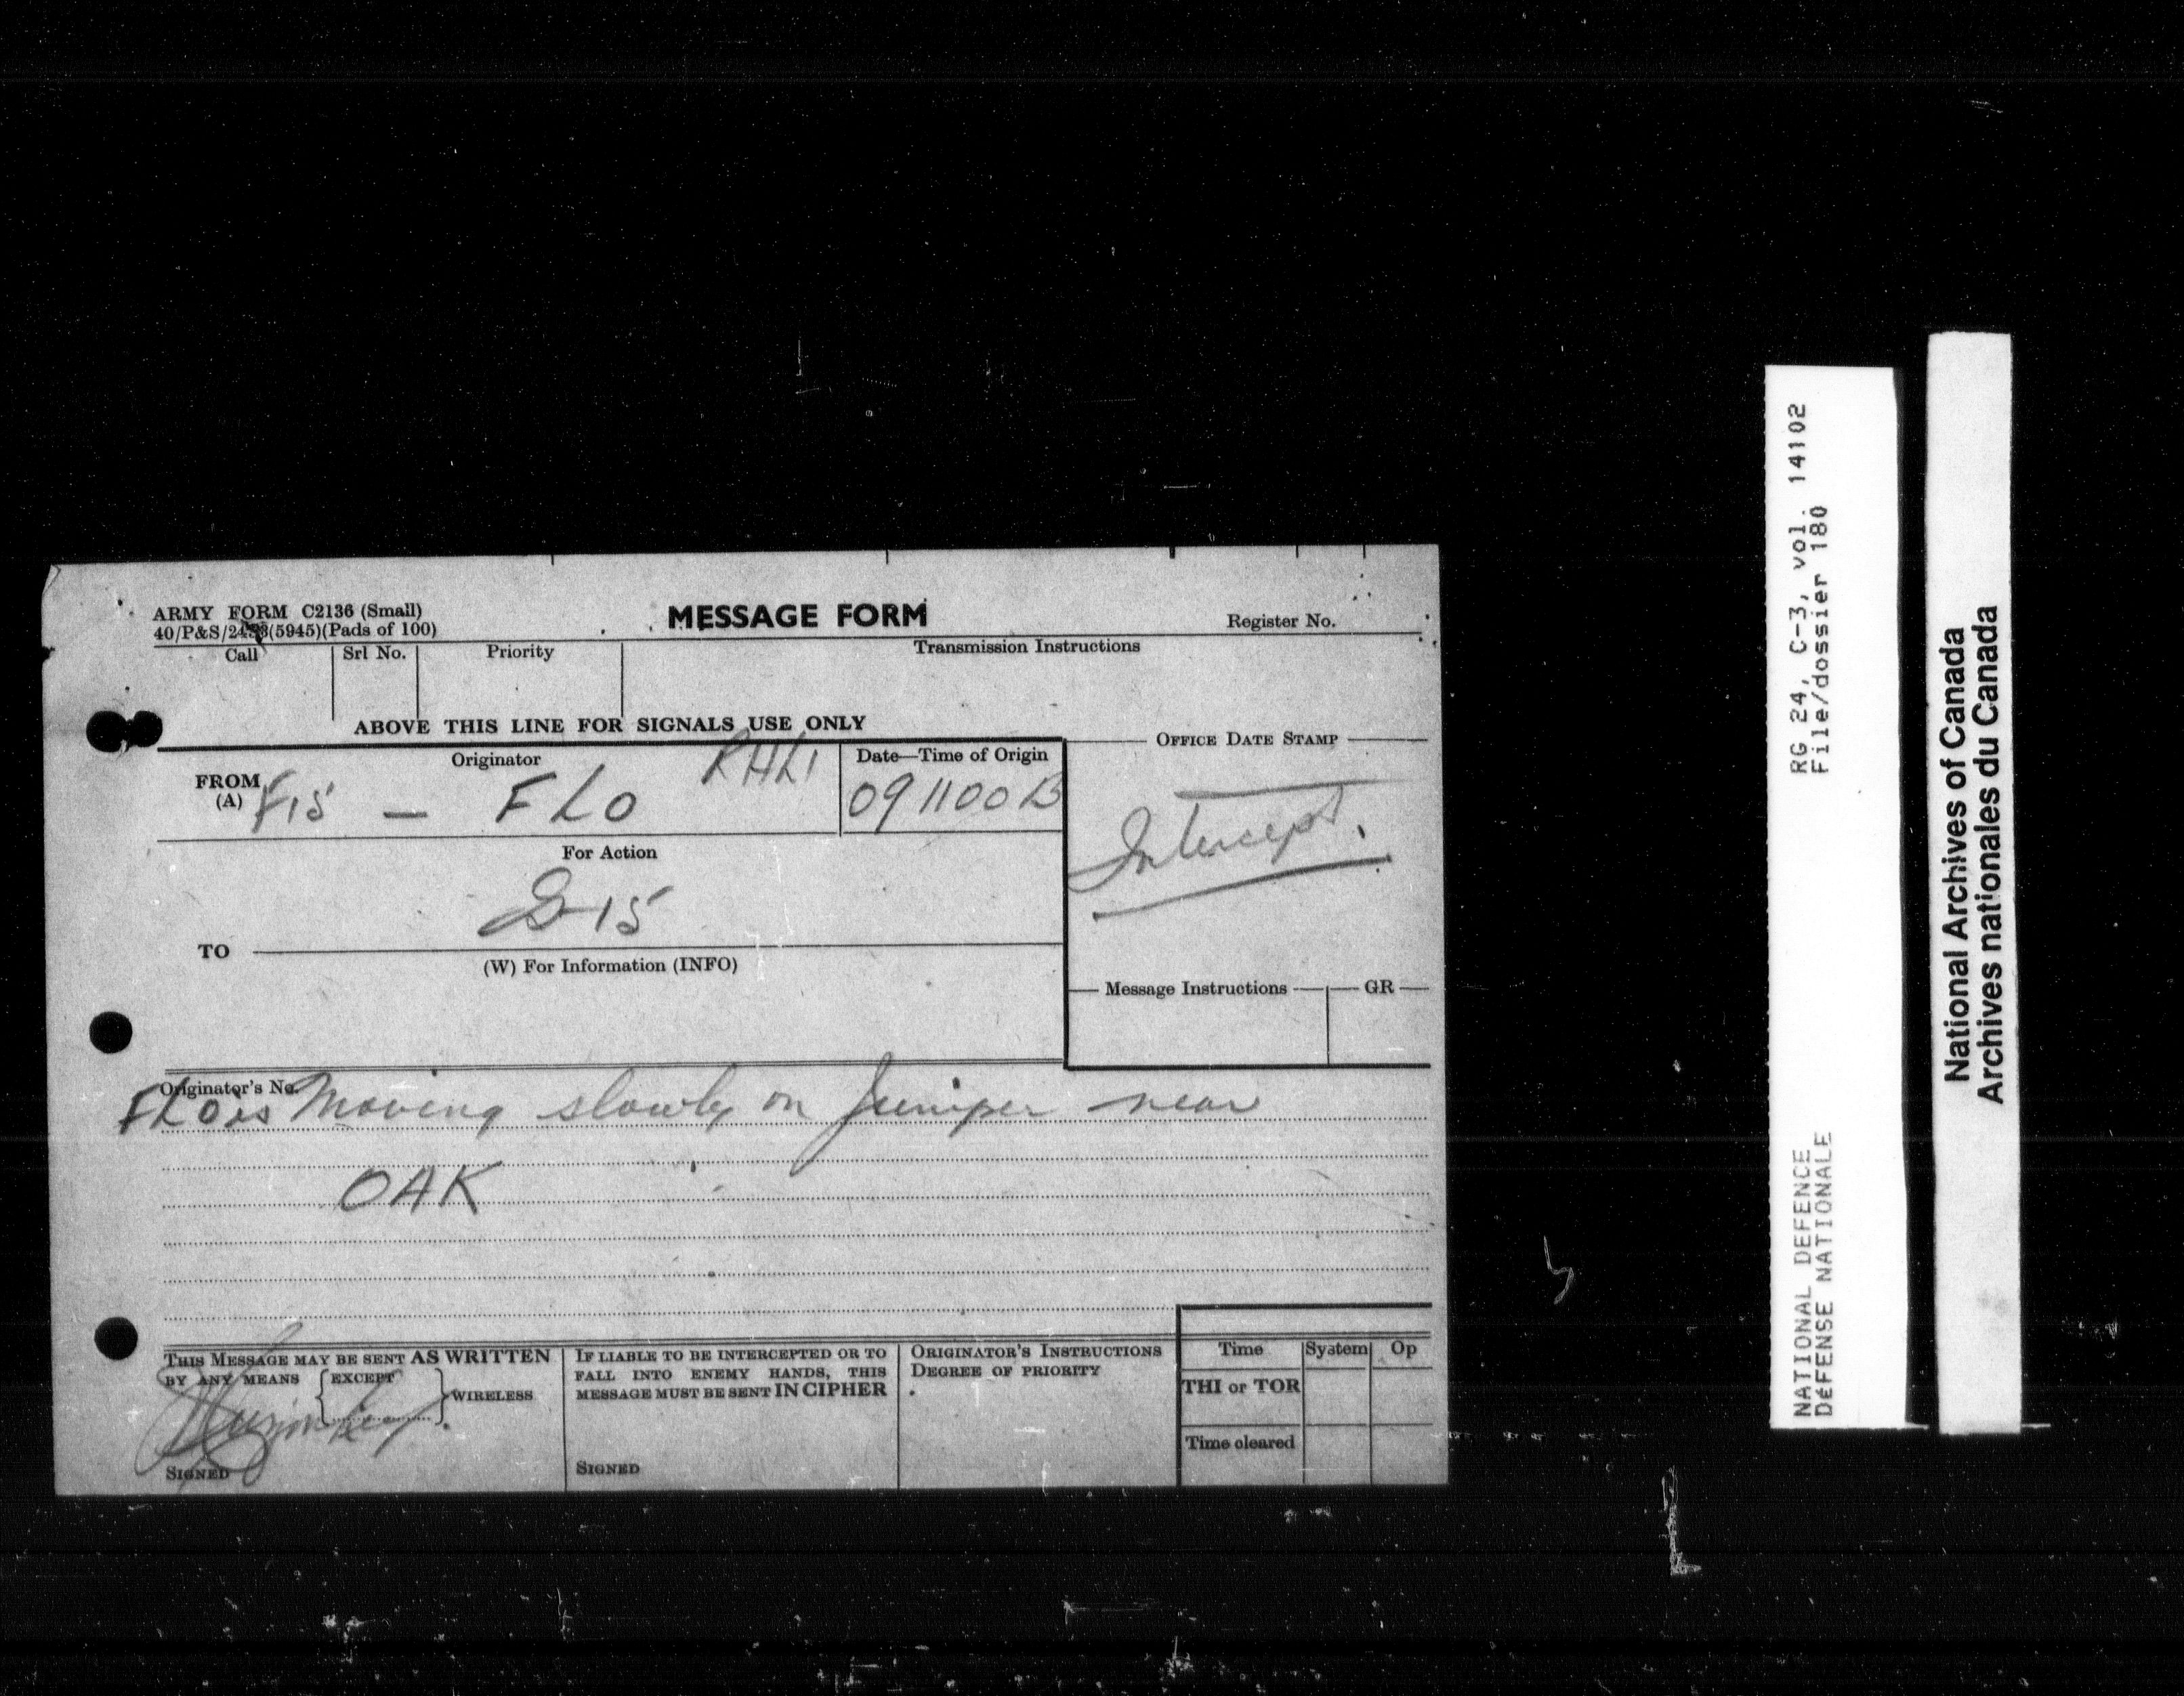 ARMY FORM C2136 (Small)
MESSAGE FORM
Register No.
40/P&S/2453(5945)(Pads of 100)
Call
Srl No.
Priority
Transmission Instructions
ABOVE THIS LINE FOR SIGNALS USE ONLY
OFFICE DATE STAMP
FROM
(A)
Originator
RHLI
F15 — FLO
Date—Time of Origin
091100B
Intercept.
For Action
15
TO
(W) For Information (INFO)
Message Instructions
GR
Originator's No.
FLO is Moving slowly on Juniper near
OAK
THIS MESSAGE MAY BE SENT AS WRITTEN
BY ANY MEANS
EXCEPT
WIRELESS
SIGNED
IF LIABLE TO BE INTERCEPTED OR TO
FALL INTO ENEMY HANDS, THIS
MESSAGE MUST BE SENT IN CIPHER
SIGNED
ORIGINATOR'S INSTRUCTIONS
DEGREE OF PRIORITY
Time
System
Op
THI or TOR
Time cleared
RG 24, C-3, vol. 14102
File/dossier 180
NATIONAL DEFENCE
DéFENSE NATIONALE
National Archives of Canada
Archives nationales du Canada